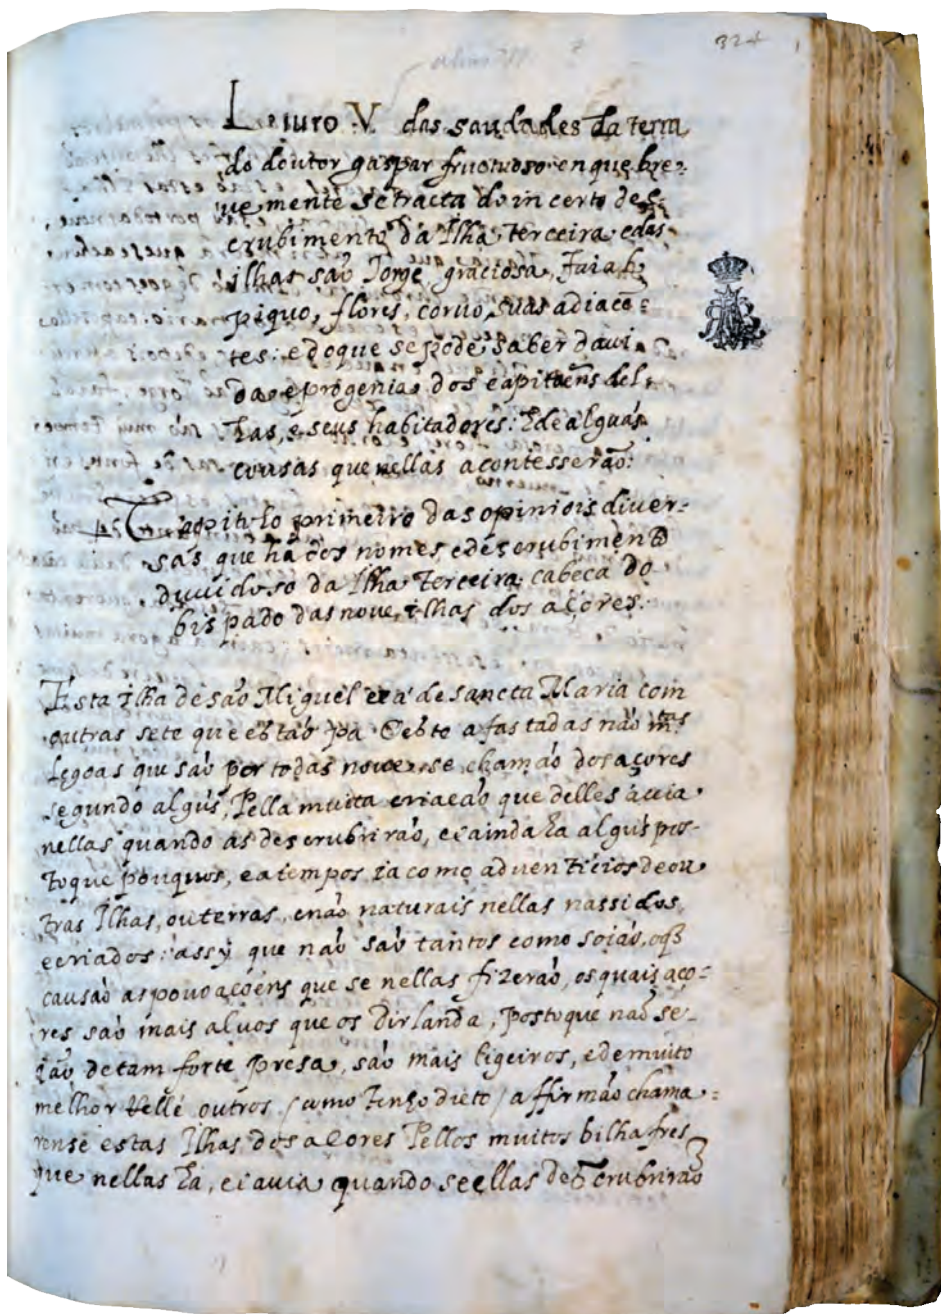 324
Liuro V das saudades da terra
do doutor gaspar fructuoso en que bre-
ue mente se tracta do in certo des-
crubimento da Ilha terceira e das
ilhas são Jorge graciosa, faial,
piquo, flores, coruo, suas adiacē-
tes: e do que se pode saber da ui-
da e progenia dos capitaēns del-
las, e seus habitadores: E de alguãs
cousas que nellas acontesserão:
Capitulo primeiro das opiniois diuer-
sas que há dos nomes e descrubimento
duuidoso da Ilha terceira cabeca do
bispado das noue ilhas dos açores.
Esta ilha de são Miguel e a de sancta Maria com
outras sete que estão pa Oeste afastadas não mtas
legoas que são por todas noue se chamão dos açores
segundo algũs, Pella muita criacão que delles auia
nellas quando as descrubrirão, e ainda ha algũs pos-
to que pouquos, e a tempos ia como aduenticios de ou
tras Ilhas, ou terras, e não naturais nellas nassidos,
e criados: assy que não são tantos como soião, o q̃
causão as pouoaçoēns que se nellas fizerão, os quais aço-
res são mais aluos que os Dirlanda, posto que não se-
ião de tam forte presa, são mais ligeiros, e de muito
melhor outros (como tenho dicto) affirmão chama-
rense estas Ilhas dos acores Pellos muitos bilhafres
que nellas ha, e auia quando se ellas descrubrirão